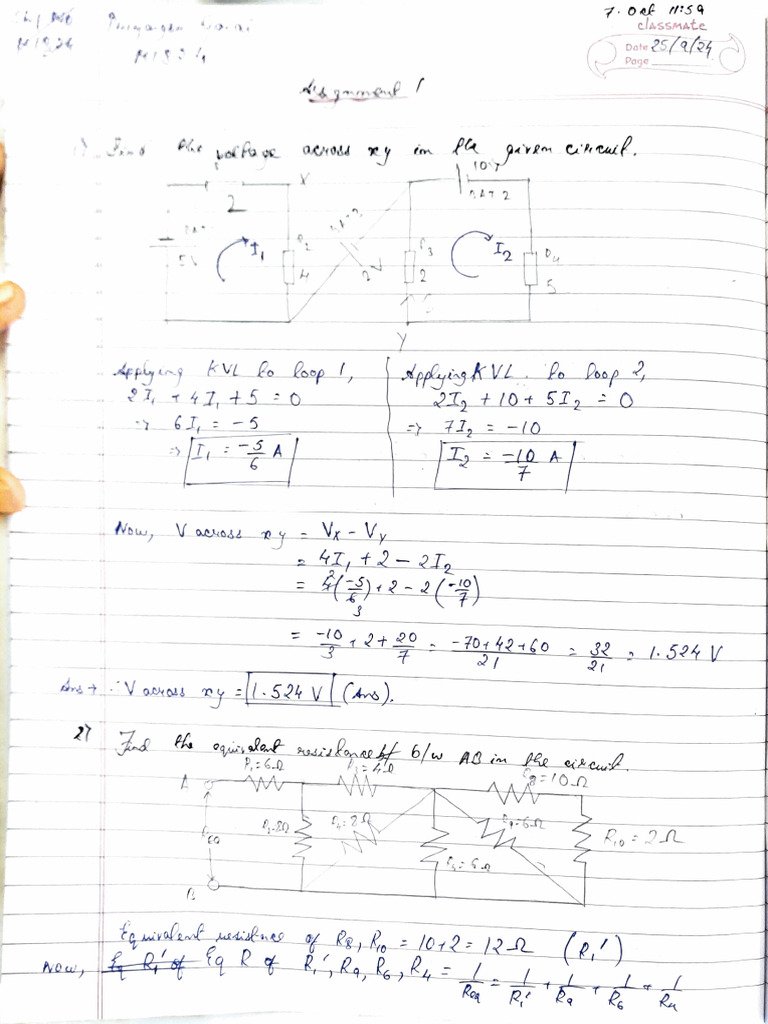 7. Oct 11:59
classmate
Date 25/9/24
Page
Assignment 1
1) Find the voltage across xy in the given circuit.
X
10V
BAT 2
2
5V
I₁
R2
4
2V
R3
2
I₂
R4
5
Y
Applying KVL to loop 1,
2I₁ + 4I₁ + 5 = 0
⇒ 6I₁ = -5
⇒ I₁ = -5/6 A
Applying KVL to loop 2,
2I₂ + 10 + 5I₂ = 0
⇒ 7I₂ = -10
I₂ = -10/7 A
Now, V across xy = Vx - Vy
= 4I₁ + 2 - 2I₂
= 4(-5/6) + 2 - 2(-10/7)
= -10/3 + 2 + 20/7 = -70+42+60/21 = 32/21 = 1.524 V
Ans → ∴ V across xy = 1.524 V (Ans).
2) Find the equivalent resistance b/w AB in the circuit.
A
R₁=6Ω
4Ω
R8=10Ω
R4=8Ω
R9=6Ω
R10=2Ω
R6=6Ω
B
Equivalent resistnce of R8, R10 = 10+2 = 12Ω (R₁')
Now, Eq R₁' of Eq R of R₁', R9, R6, R4 = 1/Req = 1/R₁' + 1/R9 + 1/R6 + 1/R4